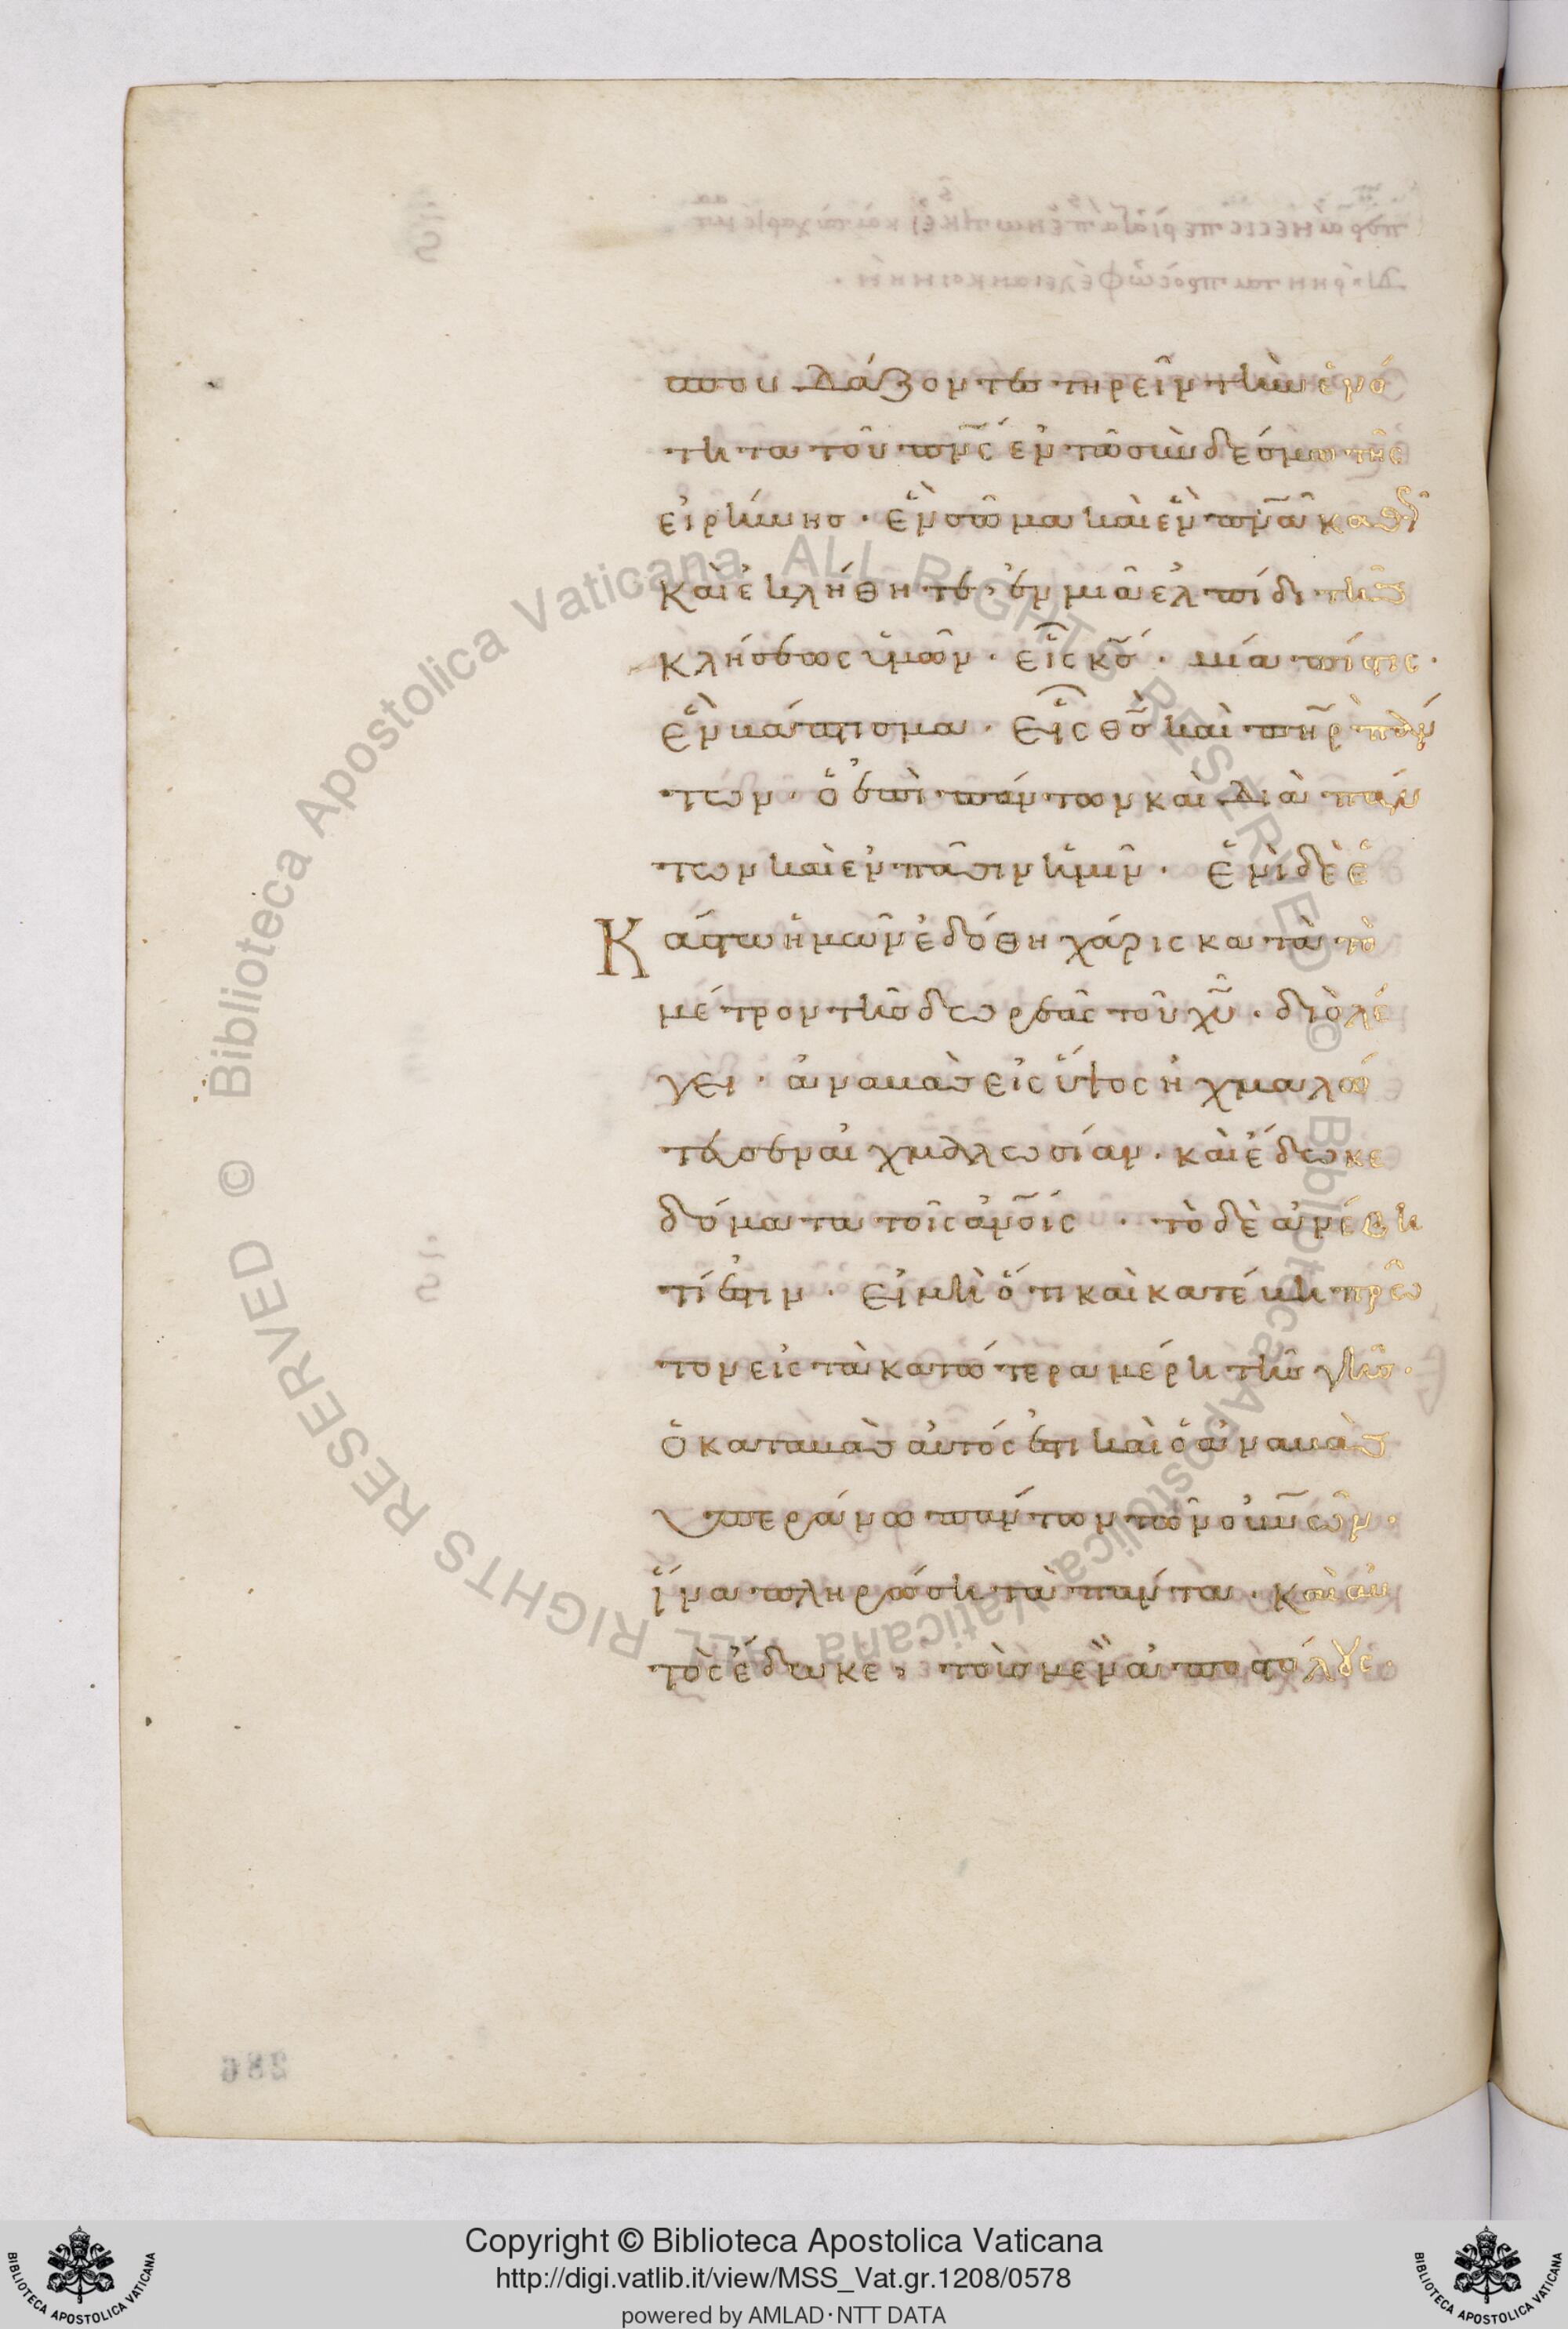 σπουδάζοντες τηρεῖν τὴν ἑνό
τητα τοῦ πν̅ς ἐν τῷ συνδέσμῳ τῆς
εἰρήνης · ἓν σῶμα καὶ ἓν πν̅α καθὼ
καὶ ἐκλήθητε, ἐν μιᾷ ἐλπίδι τῆς
κλήσεως ὑμῶν · εἷς κ̅ς · μία πίστις ·
ἓν βάπτισμα · εἷς θ̅ς καὶ π̅ηρ πάν
των · ὁ ἐπὶ πάντων καὶ διὰ πάν
των καὶ ἐν πᾶσιν ἡμῖν · ἑνὶ δὲ ἑ
κάστῳ ἡμῶν ἐδόθη χάρις κατὰ τὸ
μέτρον τῆς δωρεᾶς τοῦ χ̅υ · διὸ λέ
γει · ἀναβὰς εἰς ὕψος ἠχμαλώ
τευσεν αἰχμαλωσίαν · καὶ ἔδωκε
δόματα τοῖς ἀν̅οις · τὸ δὲ ἀνέβη
τί ἐστιν · εἰ μὴ ὅτι καὶ κατέβη πρῶ
τον εἰς τὰ κατώτερα μέρη τῆς γῆς ·
ὁ καταβὰς αὐτός ἐστι καὶ ὁ ἀναβὰς
ὑπεράνω πάντων τῶν οὐν̅ων ·
ἵνα πληρώσῃ τὰ πάντα · καὶ αὐ
τὸς ἔδωκε, τοὺς μὲν ἀποστόλους ·
Copyright © Biblioteca Apostolica Vaticana
http://digi.vatlib.it/view/MSS_Vat.gr.1208/0578
powered by AMLAD·NTT DATA